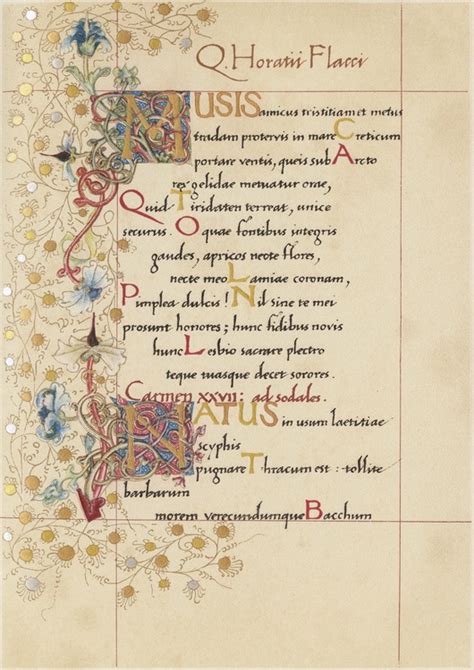 Q. Horatii Flacci
MUSIS amicus tristitiam et metus
tradam protervis in mare Creticum
portare ventis, queis sub Arcto
rex gelidae metuatur orae,
Quid Tiridaten terreat, unice
securus. O quae fontibus integris
gaudes, apricos necte flores,
necte meo Lamiae coronam,
Pimplea dulcis! Nil sine te mei
prosunt honores; hunc fidibus novis
hunc Lesbio sacrare plectro
teque tuasque decet sorores.
Carmen XXVII: ad sodales.
NATUS in usum laetitiae
scyphis
pugnare Thracum est: tollite
barbarum
morem verecundumque Bacchum